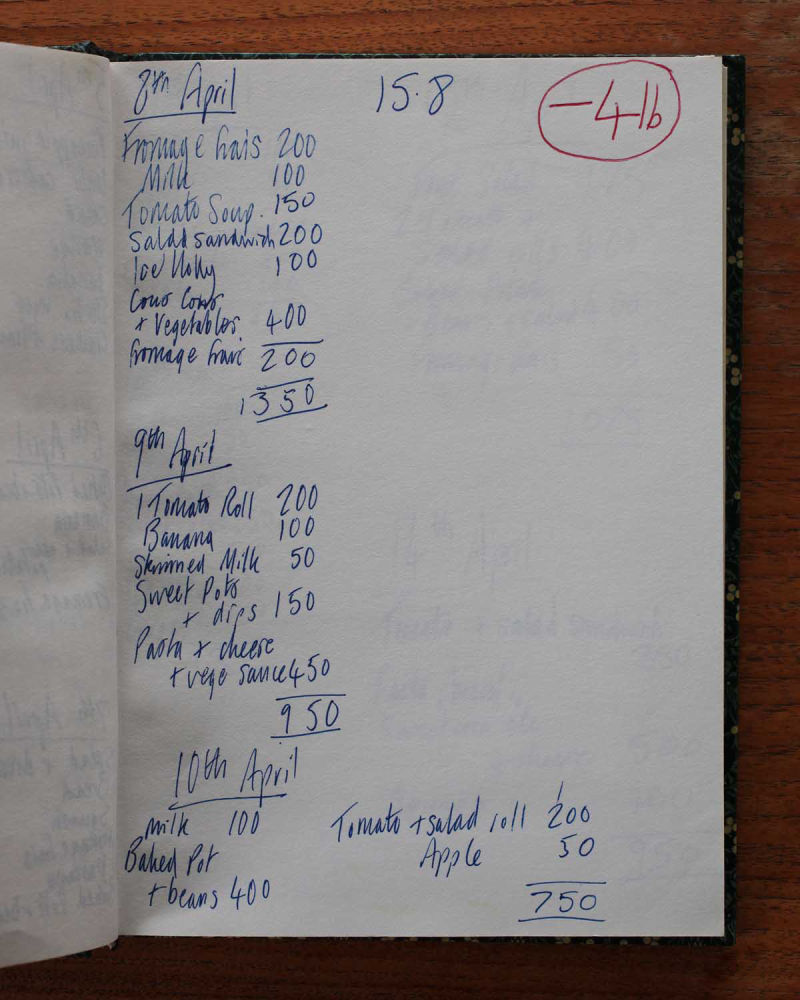 8th April 15.8 -4lb
Fromage frais 200
Milk 100
Tomato Soup. 150
Salad sandwich 200
Ice lolly 100
Cous Cous
+ Vegetables 400
fromage frais 200
1350
9th April
1 Tomato Roll 200
Banana 100
Skimmed Milk 50
Sweet Pots
+ dips 150
Pasta + cheese
+ vege sauce 450
950
10th April
Milk 100 Tomato + salad roll 200
Baked Pot Apple 50
+ beans 400 750